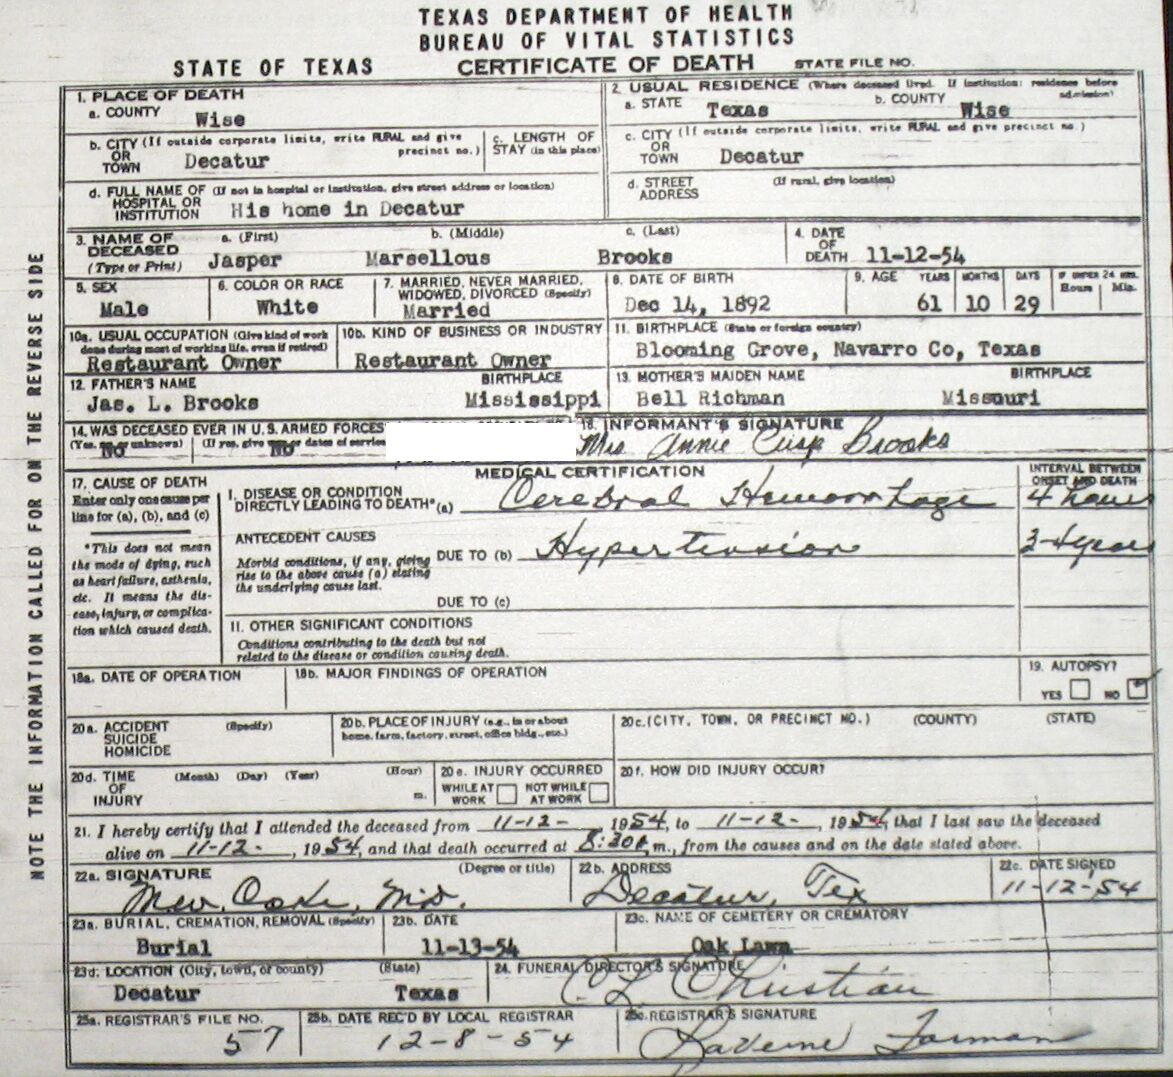 TEXAS DEPARTMENT OF HEALTH
BUREAU OF VITAL STATISTICS
STATE OF TEXAS CERTIFICATE OF DEATH STATE FILE NO.
NOTE THE INFORMATION CALLED FOR ON THE REVERSE SIDE
1. PLACE OF DEATH
a. COUNTY Wise
2. USUAL RESIDENCE (Where deceased lived. If institution: residence before admission)
a. STATE Texas b. COUNTY Wise
b. CITY (If outside corporate limits, write RURAL and give precinct no.)
OR TOWN Decatur
c. LENGTH OF STAY (in this place)
c. CITY (If outside corporate limits, write RURAL and give precinct no.)
OR TOWN Decatur
d. FULL NAME OF (If not in hospital or institution, give street address or location)
HOSPITAL OR INSTITUTION His home in Decatur
d. STREET ADDRESS (If rural, give location)
3. NAME OF DECEASED (Type or Print)
a. (First) b. (Middle) c. (Last)
Jasper Marsellous Brooks
4. DATE OF DEATH 11-12-54
5. SEX
Male
6. COLOR OR RACE
White
7. MARRIED, NEVER MARRIED, WIDOWED, DIVORCED (Specify)
Married
8. DATE OF BIRTH
Dec 14, 1892
9. AGE YEARS MONTHS DAYS IF UNDER 24 HRS. Hours Min.
61 10 29
10a. USUAL OCCUPATION (Give kind of work done during most of working life, even if retired)
Restaurant Owner
10b. KIND OF BUSINESS OR INDUSTRY
Restaurant Owner
11. BIRTHPLACE (State or foreign country)
Blooming Grove, Navarro Co, Texas
12. FATHER'S NAME BIRTHPLACE
Jas. L. Brooks Mississippi
13. MOTHER'S MAIDEN NAME BIRTHPLACE
Bell Richman Missouri
14. WAS DECEASED EVER IN U.S. ARMED FORCES
(Yes, no or unknown) (If yes, give war or dates of service
No No
16. INFORMANT'S SIGNATURE
Mrs Annie Brooks
MEDICAL CERTIFICATION
INTERVAL BETWEEN ONSET AND DEATH
17. CAUSE OF DEATH
Enter only one cause per line for (a), (b), and (c)
*This does not mean the mode of dying, such as heart failure, asthenia, etc. It means the disease, injury, or complication which caused death.
I. DISEASE OR CONDITION DIRECTLY LEADING TO DEATH* (a) Cerebral Hemorrhage 4 hours
ANTECEDENT CAUSES
Morbid conditions, if any, giving rise to the above cause (a) stating the underlying cause last.
DUE TO (b) Hypertension 3-4 years
DUE TO (c)
II. OTHER SIGNIFICANT CONDITIONS
Conditions contributing to the death but not related to the disease or condition causing death.
18a. DATE OF OPERATION
18b. MAJOR FINDINGS OF OPERATION
19. AUTOPSY?
YES NO
20a. ACCIDENT SUICIDE HOMICIDE (Specify)
20b. PLACE OF INJURY (e.g., in or about home, farm, factory, street, office bldg., etc.)
20c. (CITY, TOWN, OR PRECINCT NO.) (COUNTY) (STATE)
20d. TIME OF INJURY (Month) (Day) (Year) (Hour) m.
20e. INJURY OCCURRED
WHILE AT WORK NOT WHILE AT WORK
20f. HOW DID INJURY OCCUR?
21. I hereby certify that I attended the deceased from 11-12-, 1954, to 11-12-, 1954, that I last saw the deceased
alive on 11-12-, 1954, and that death occurred at 8:30 m., from the causes and on the date stated above.
22a. SIGNATURE (Degree or title)
M.D.
22b. ADDRESS
Decatur, Tex
22c. DATE SIGNED
11-12-'54
23a. BURIAL, CREMATION, REMOVAL (Specify)
Burial
23b. DATE
11-13-54
23c. NAME OF CEMETERY OR CREMATORY
Oak Lawn
23d. LOCATION (City, town, or county) (State)
Decatur Texas
24. FUNERAL DIRECTOR'S SIGNATURE
C L Christian
25a. REGISTRAR'S FILE NO.
57
25b. DATE REC'D BY LOCAL REGISTRAR
12-8-54
25c. REGISTRAR'S SIGNATURE